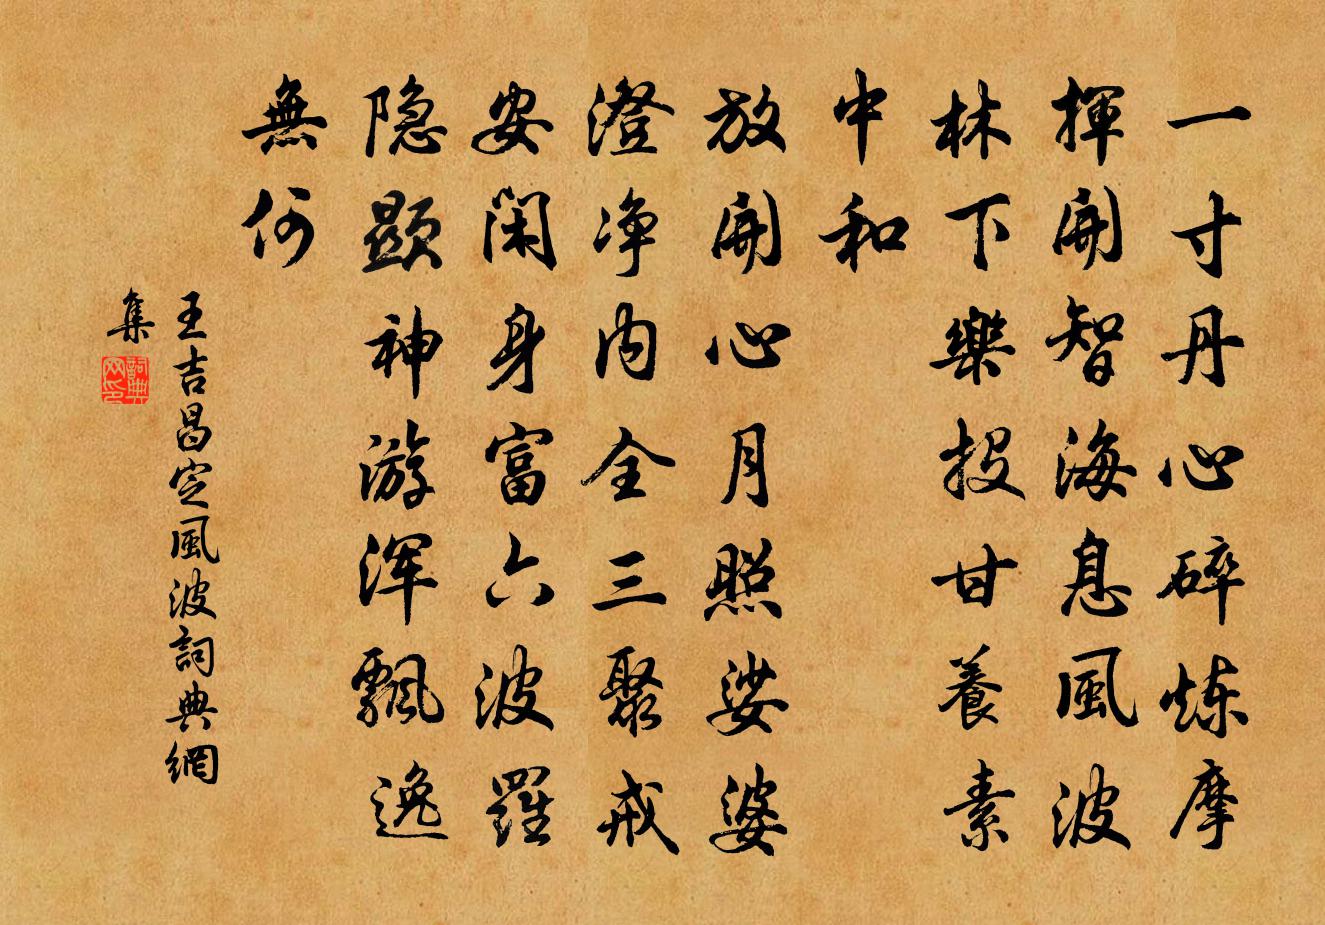 一寸丹心碎炼摩
揮開智海息風波
林下樂投甘養素
中和
放開心月照娑婆
澄净内全三聚戒
安閑身富六波羅
隐顯神游浑飄逸
無何
王吉昌定風波詞典網
集
詞典网印